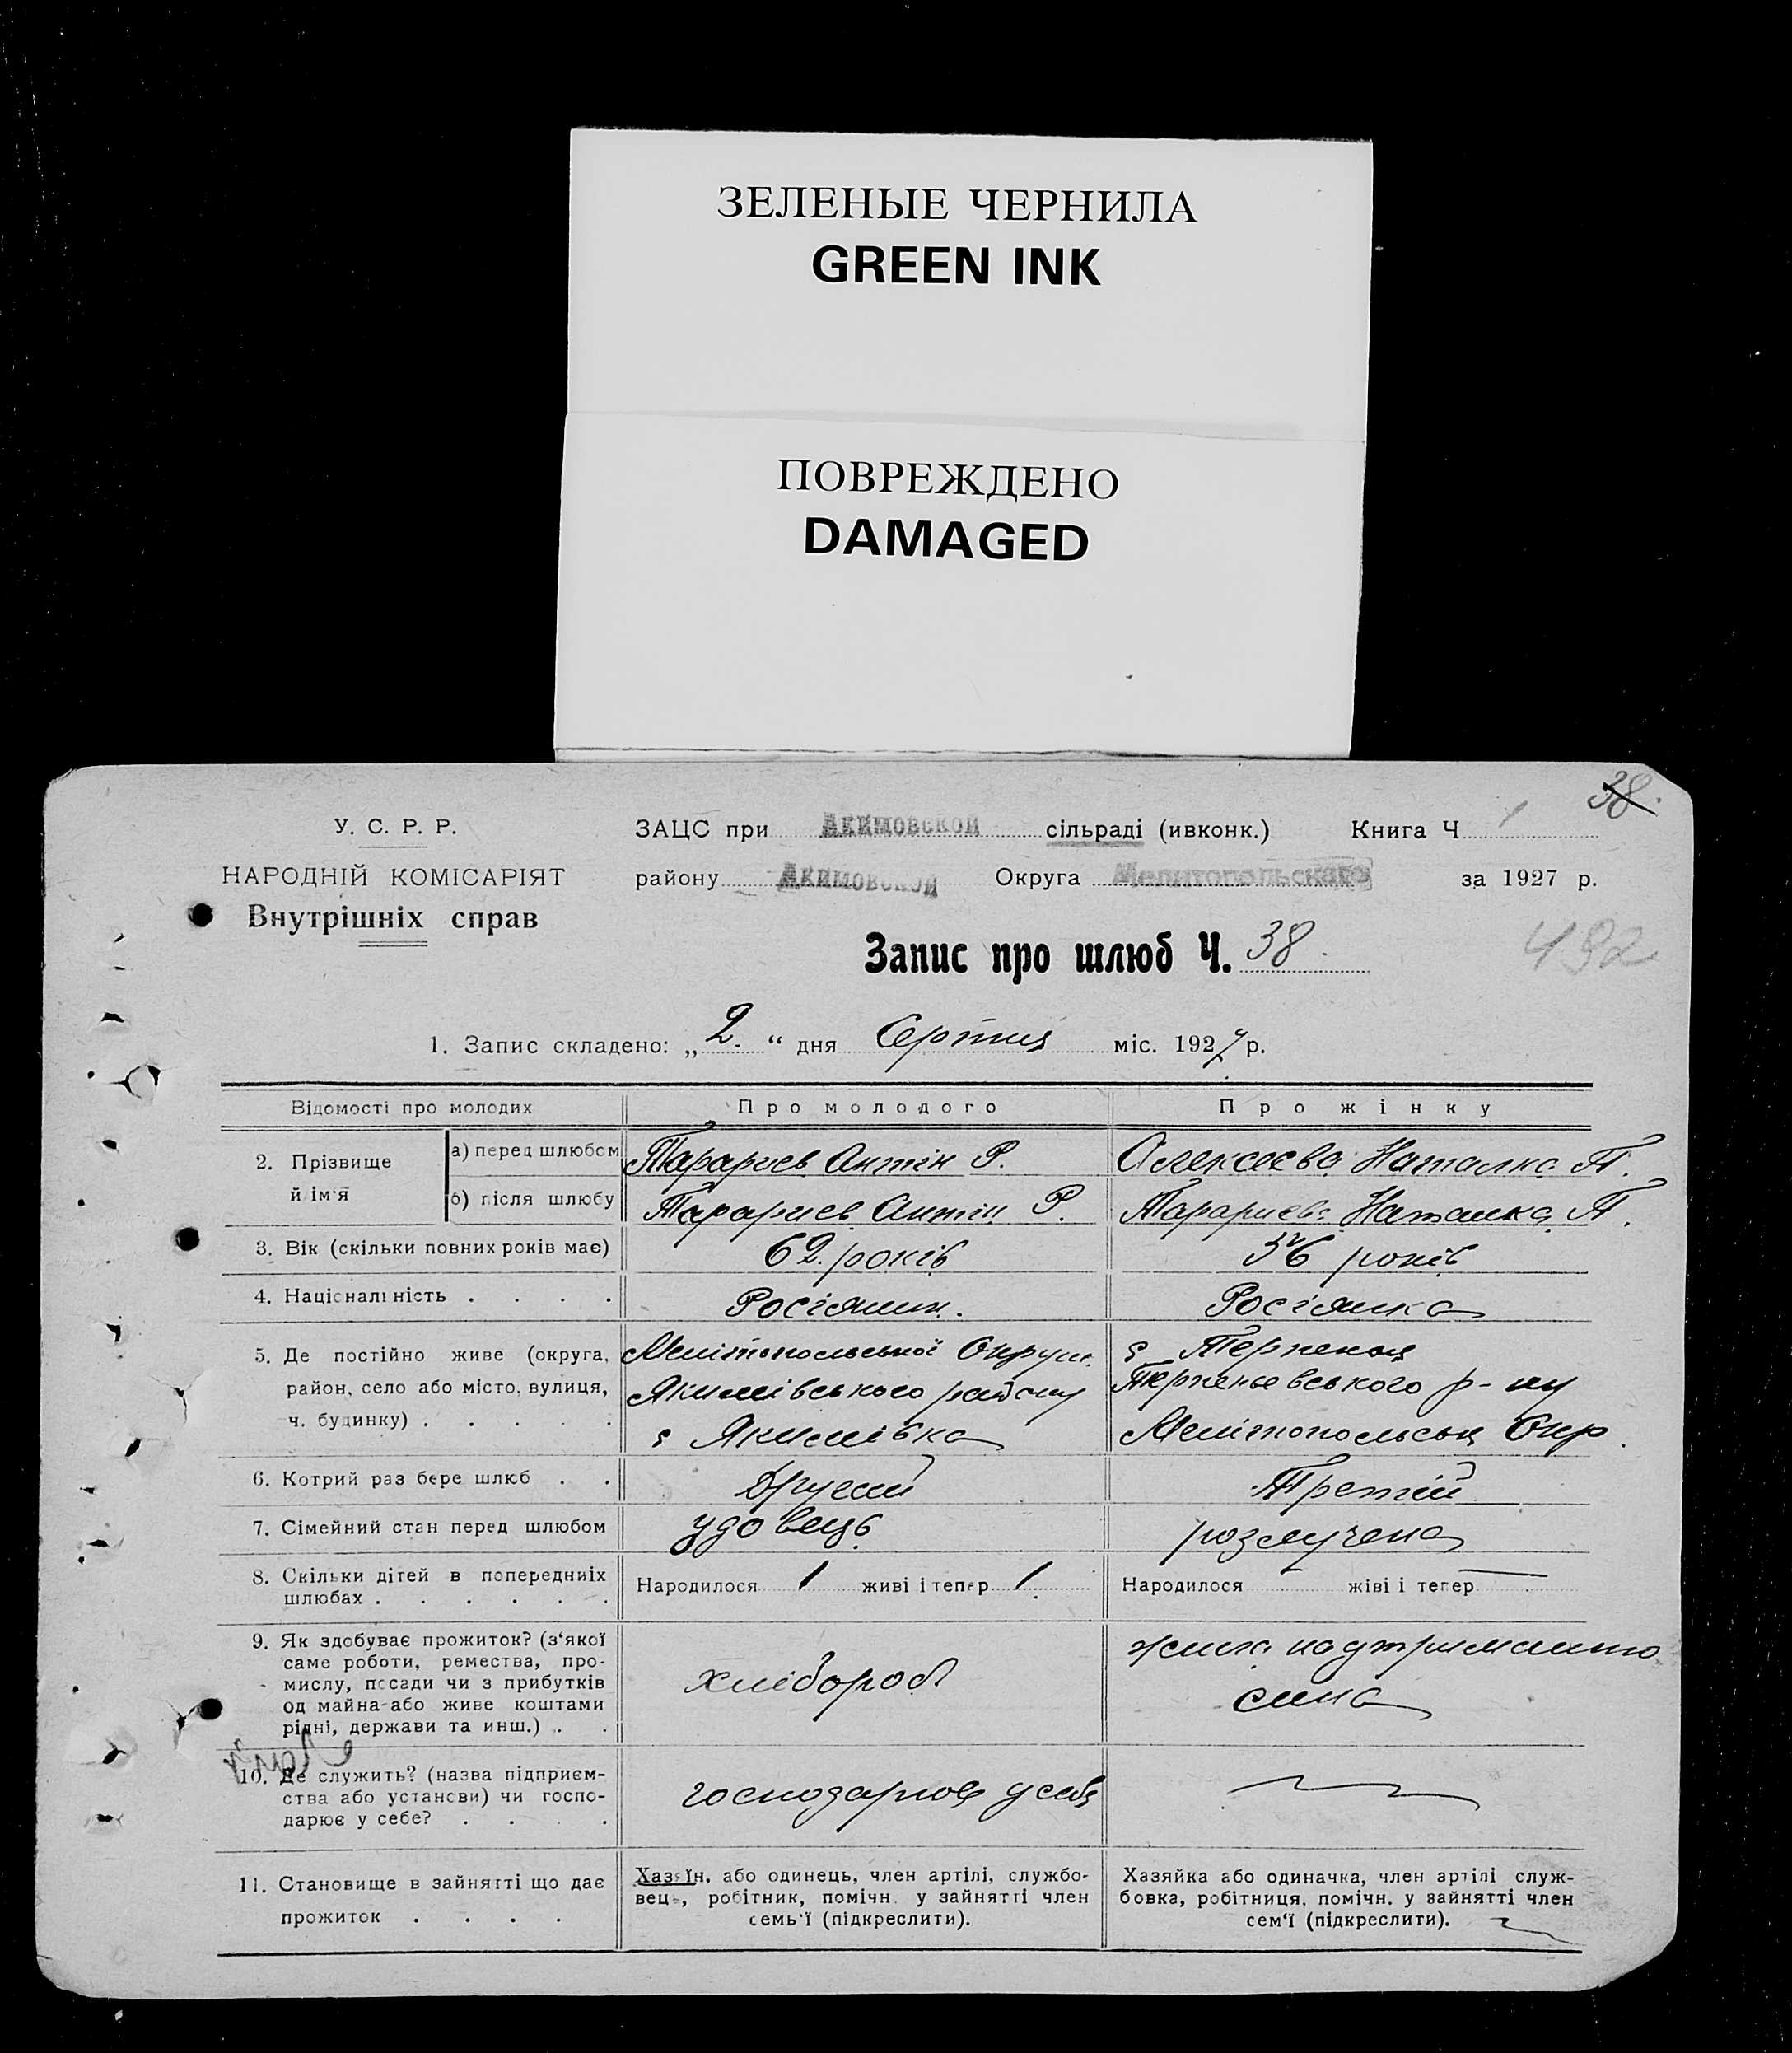 ЗЕЛЕНЫЕ ЧЕРНИЛА
GREEN INK
ПОВРЕЖДЕНО
DAMAGED
38.
У. С. Р. Р.
НАРОДНІЙ КОМІСАРІЯТ
Внутрішніх справ
ЗАЦС при Акимовской сільраді (ивконк.) Книга Ч 1
району Акимовской Округа Мелитопольскаго за 1927 р.
Запис про шлюб Ч. 38.
492
1. Запис складено: „2.“ дня Серпня міс. 1927 р.
Відомості про молодих
Про молодого
Про жінку
2. Прізвище й ім'я
а) перед шлюбом
Тарариєв Антін Р.
Олексеєва Наталка П.
б) після шлюбу
Тарариєв Антін Р.
Тарариєва Наталка П.
3. Вік (скільки повних років має)
62 років
56 років
4. Національність . . . .
Росіянин.
Росіянка
5. Де постійно живе (округа,
район, село або місто, вулиця,
ч. будинку) . . . . .
Мелітопольської Округи
Якимівського району
с Якимівка
с Терпення
Терпеньевського р-ну
Мелітопольськ Окр.
6. Котрий раз бере шлюб . .
Другий
Третій
7. Сімейний стан перед шлюбом
удовець
розлучена
8. Скільки дітей в попередниіх
шлюбах . . . . . .
Народилося 1 живі і тепер 1
Народилося — жіві і тепер —
9. Як здобуває прожиток? (з'якої
саме роботи, ремества, про-
мислу, посади чи з прибутків
од майна або живе коштами
рідні, держави та инш.) . .
хлібороб
жила на утриманню
сина
10. Де служить? (назва підприєм-
ства або установи) чи госпо-
дарює у себе? . . . .
господарює у себе
11. Становище в зайнятті що дає
прожиток . . . .
Хазяїн, або одинець, член артілі, службо-
вець, робітник, помічн. у зайнятті член
семь'ї (підкреслити).
Хазяйка або одиначка, член артілі служ-
бовка, робітниця, помічн. у зайнятті член
сем'ї (підкреслити).